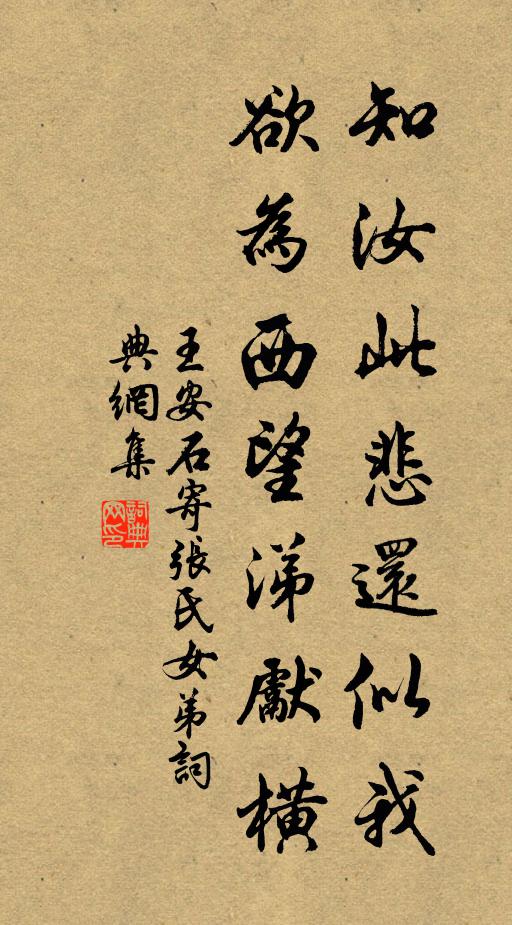 知汝此悲還似我
欲為西望涕獻橫
王安石寄張氏女弟詞
典網集
詞典網印